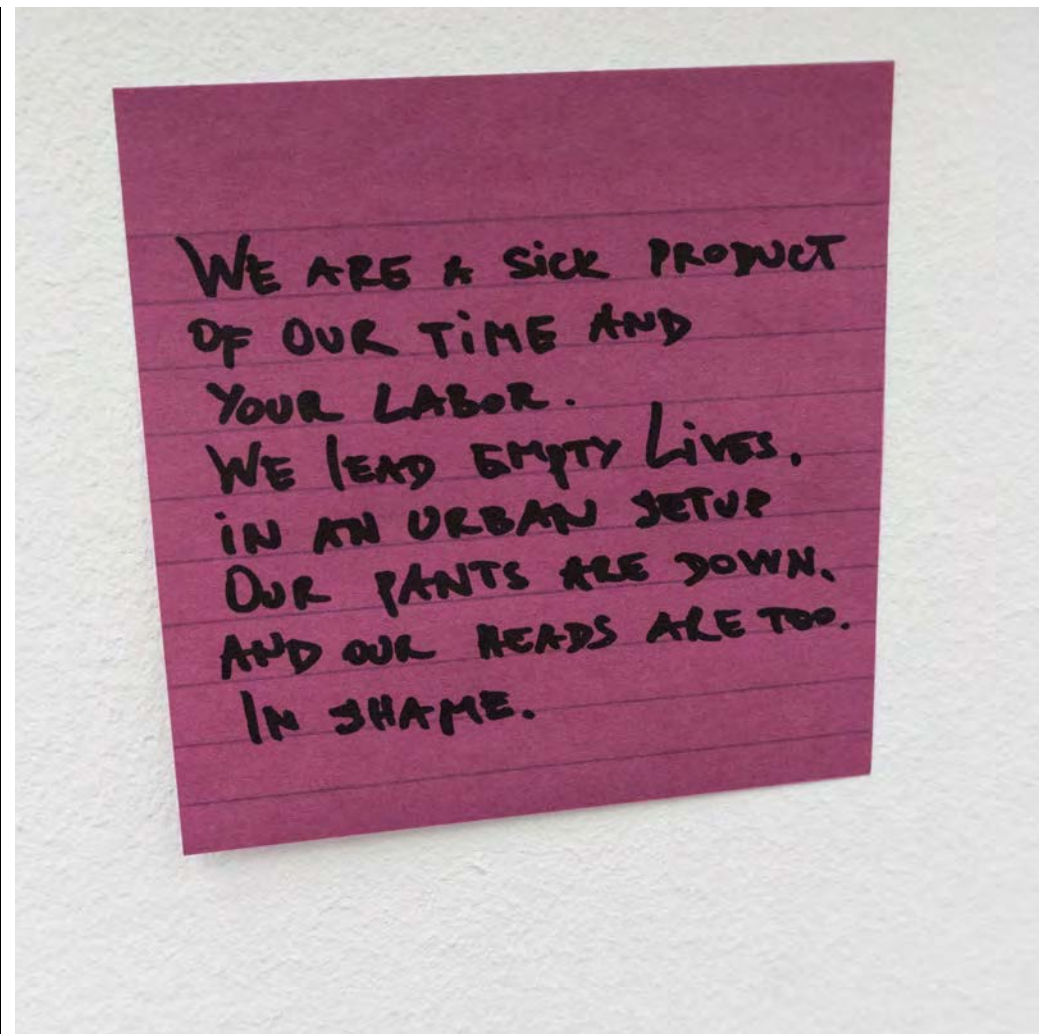 WE ARE A SiCK PRODUCT
OF OUR TiME AND
YOUR LABOR.
WE lEAD EMPTY LiVES.
iN AN URBAN SETUP
OUR PANTS ARE DOWN.
AND OUR HEADS ARE TOO.
IN SHAME.